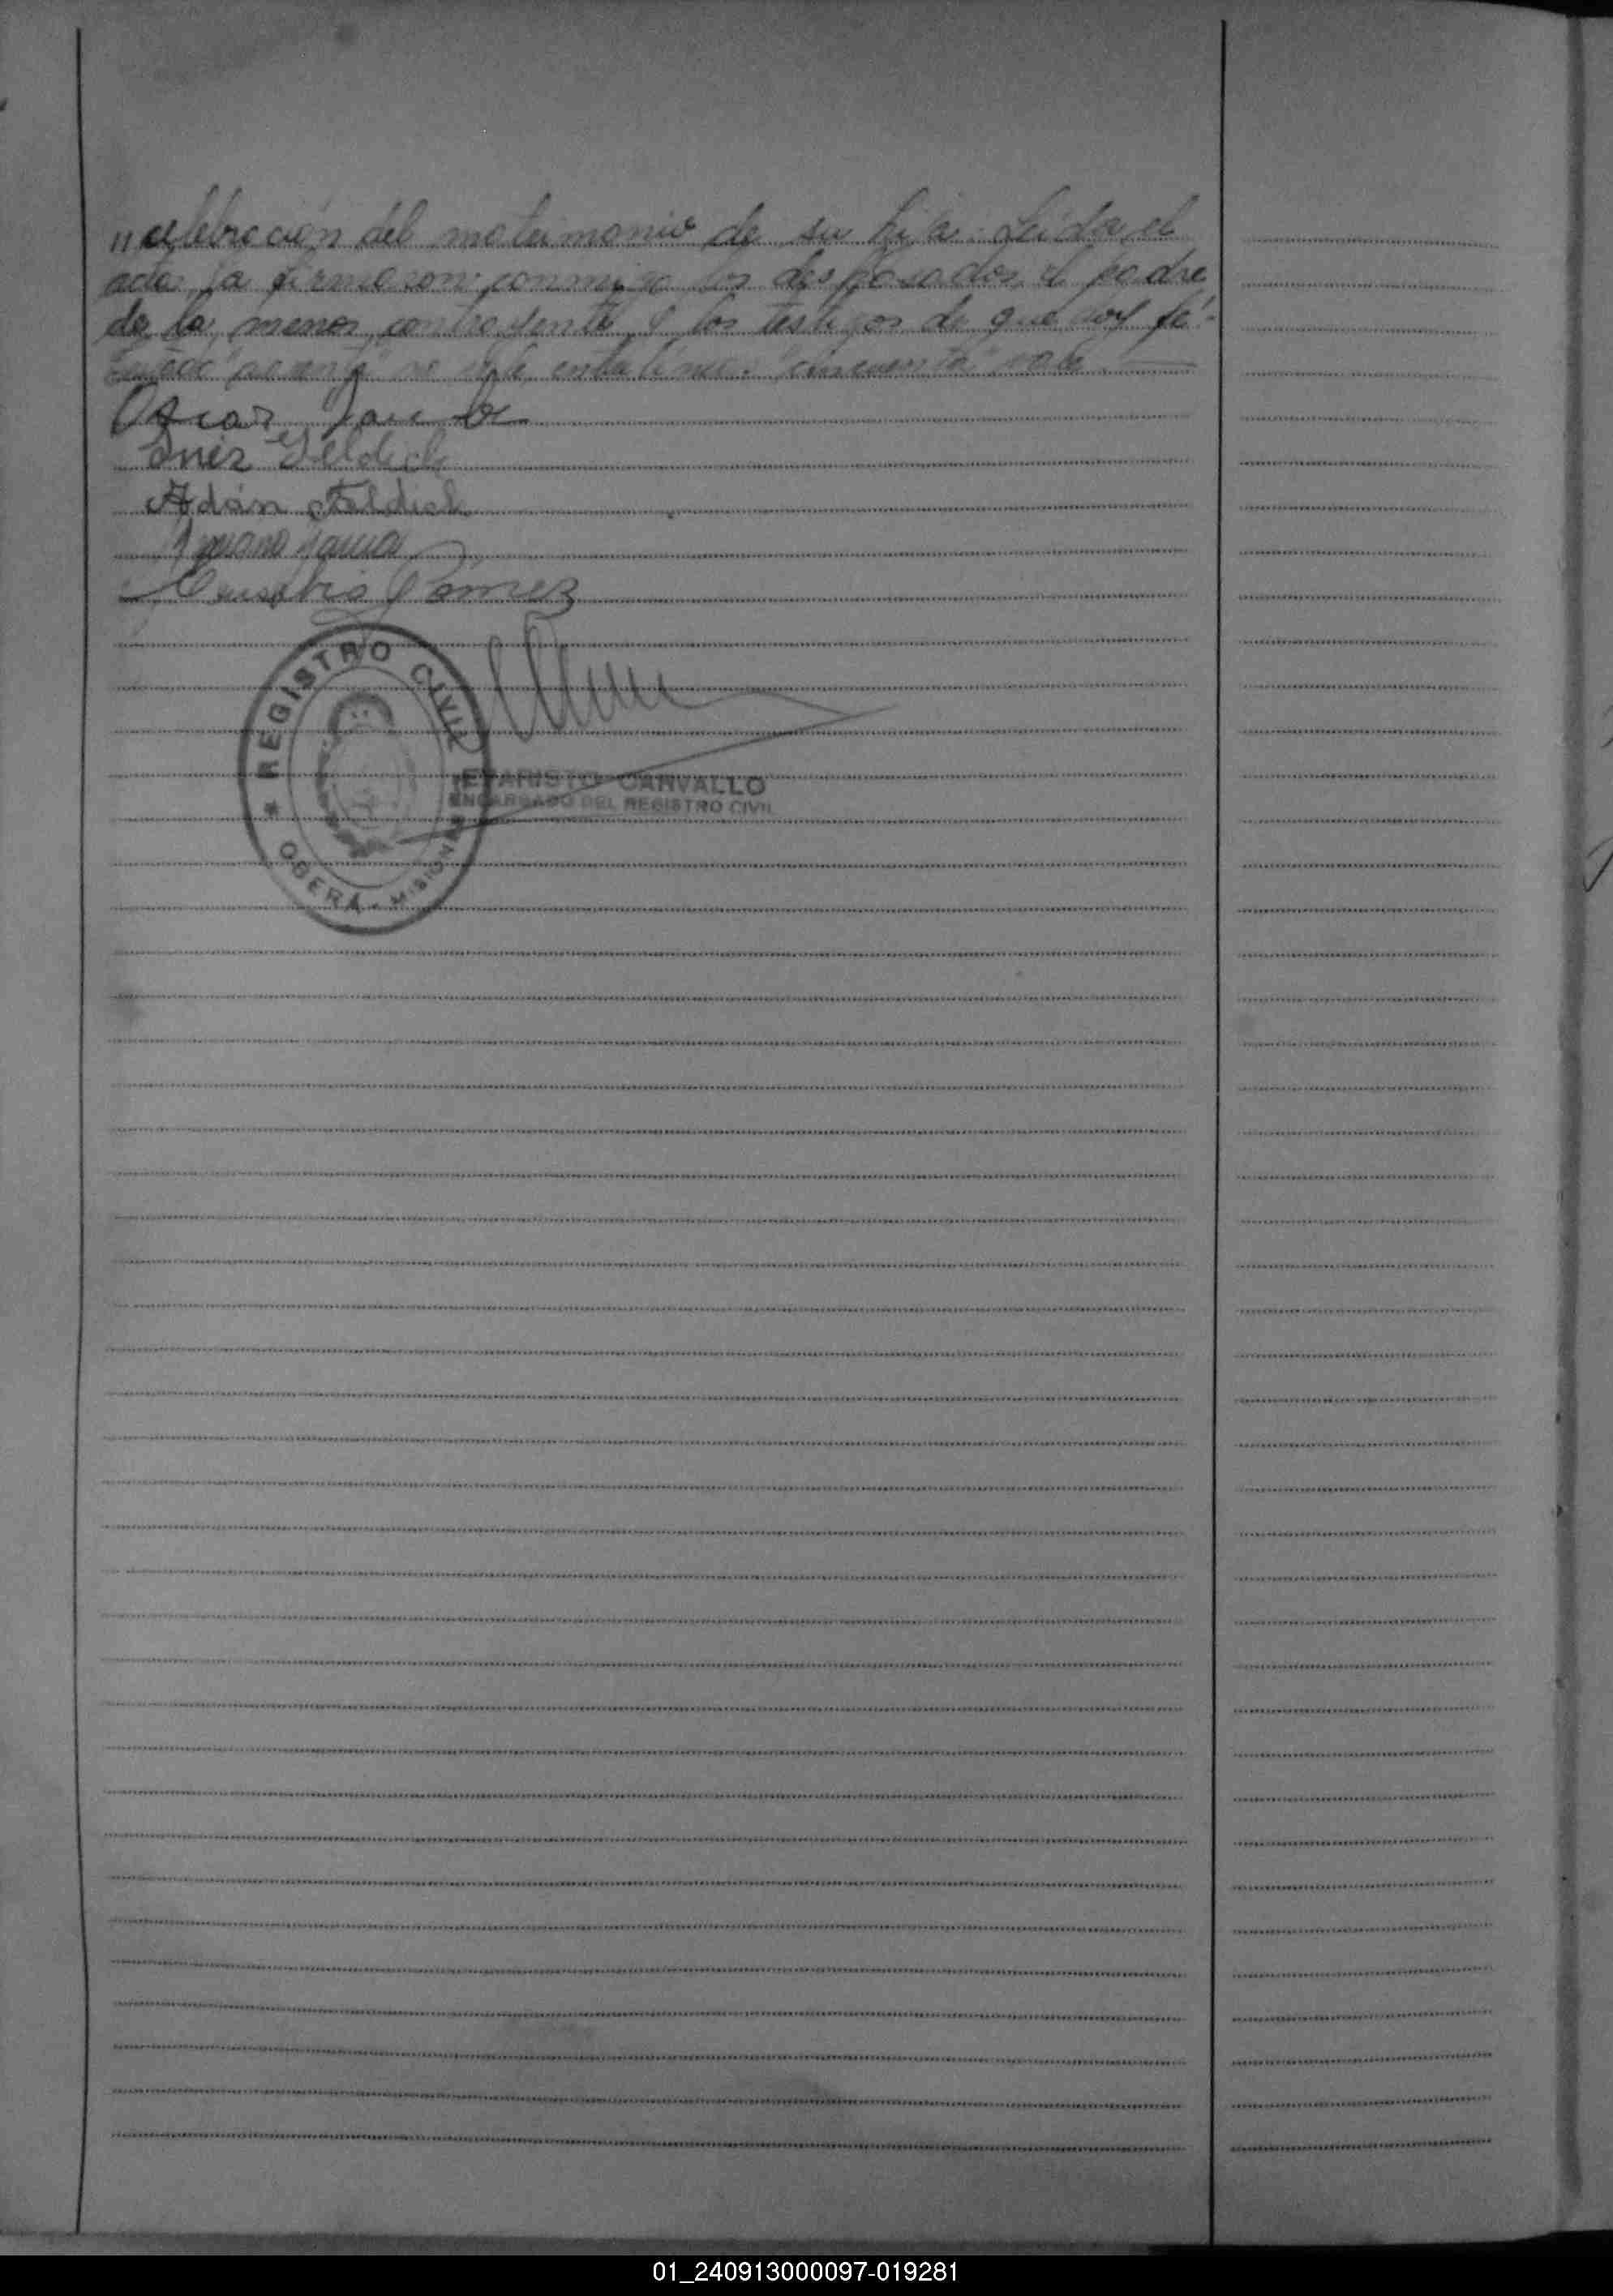 celebración del matrimonio de su hija. Leída el
acta, la firmaron conmigo los desposados, el padre
de la menor contrayente y los testigos de que doy fé.-
no vale, entre líneas: "cincuenta" vale.
Oscar
Inés Feldich
Adán Feldich
Eusebio Gomez
REGISTRO CIVIL
EVARISTO CARVALLO
ENCARGADO DEL REGISTRO CIVIL
* OBERÁ - MISIONES
01_240913000097-019281